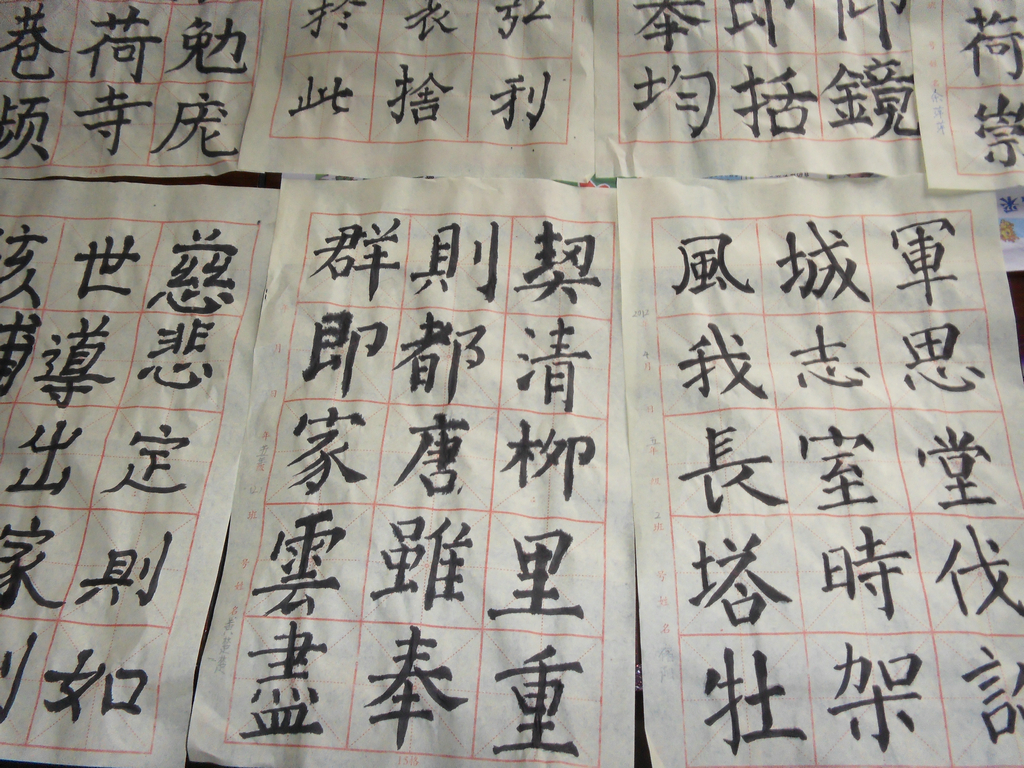 巷荷勉
寺庞
衣弘
此捨利
奉即仰
均括鏡
荷
崇
世慈
導悲
出定
家則
如
群則契
即都清
家唐柳
雲雖里
盡奉重
風城軍
我志思
長室堂
塔時伐
牡架